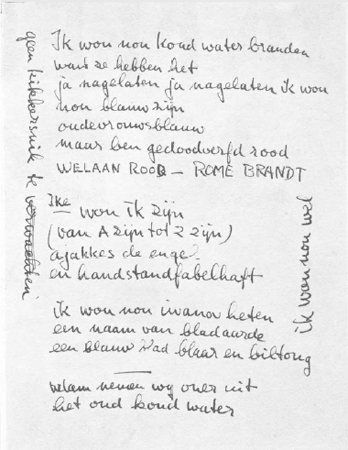 Ik won non koud water branden
want ze hebben het
ja nagelaten ja nagelaten ik won
non blauw zijn
oudevrouwsblauw
maar ben gedoodverfd rood
WELAAN ROOD – ROME BRANDT
Ike won ik zijn
(van A zijn tot Z zijn)
ajakkes de enge
en handstandfabelhaft
ik won non iwanov heten
een naam van bladaarde
een blauw blaar en biltong
welaan nemen wy over uit
het oud koud water
geen kikkersnik te verwachten
ik won non wel